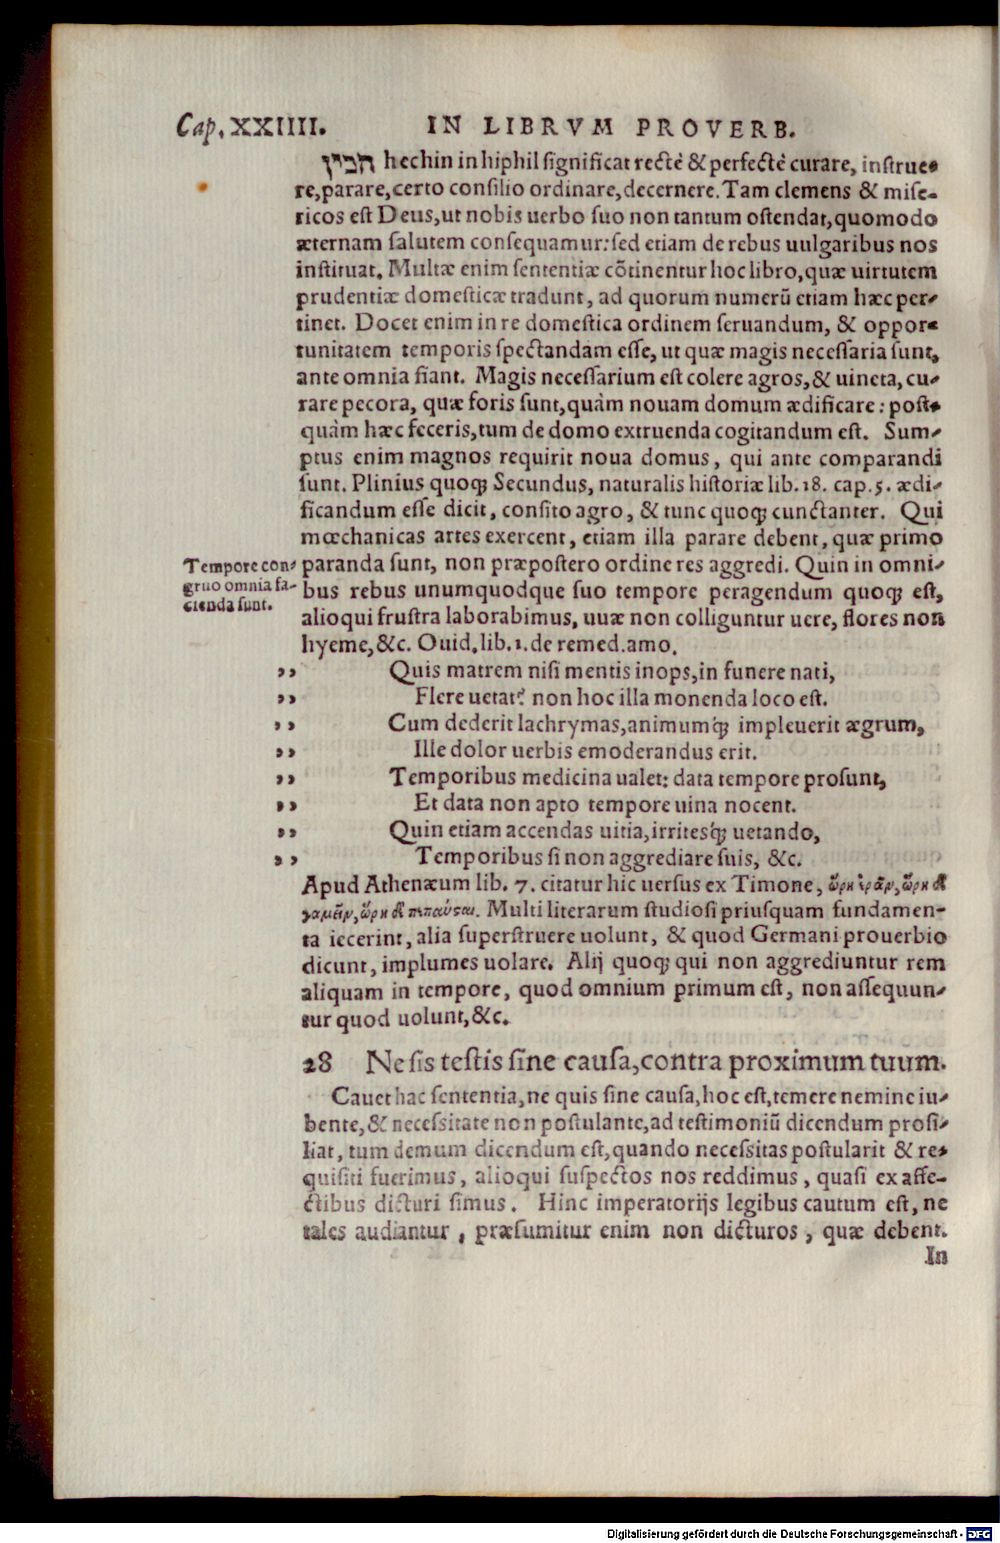 Cap. XXIIII. IN LIBRVM PROVERB.
הכין hechin in hiphil significat rectè & perfectè curare, instrue-
re, parare, certo consilio ordinare, decernere. Tam clemens & mise-
ricos est Deus, ut nobis uerbo suo non tantum ostendat, quomodo
æternam salutem consequamur: sed etiam de rebus uulgaribus nos
instituat. Multæ enim sententiæ cõtinentur hoc libro, quæ uirtutem
prudentiæ domesticæ tradunt, ad quorum numerũ etiam hæc per-
tinet. Docet enim in re domestica ordinem seruandum, & oppor-
tunitatem temporis spectandam esse, ut quæ magis necessaria sunt,
ante omnia fiant. Magis necessarium est colere agros, & uineta, cu-
rare pecora, quæ foris sunt, quàm nouam domum ædificare: post-
quàm hæc feceris, tum de domo extruenda cogitandum est. Sum-
ptus enim magnos requirit noua domus, qui ante comparandi
sunt. Plinius quoq; Secundus, naturalis historiæ lib. 18. cap. 5. ædi-
ficandum esse dicit, consito agro, & tunc quoq; cunctanter. Qui
mœchanicas artes exercent, etiam illa parare debent, quæ primo
paranda sunt, non præpostero ordine res aggredi. Quin in omni-
bus rebus unumquodque suo tempore peragendum quoq; est,
alioqui frustra laborabimus, uuæ non colliguntur uere, flores non
hyeme, &c. Ouid. lib. 1. de remed. amo.
Tempore con-
gruo omnia fa-
cienda sunt.
,, Quis matrem nisi mentis inops, in funere nati,
,, Flere uetat? non hoc illa monenda loco est.
,, Cum dederit lachrymas, animumq́; impleuerit ægrum,
,, Ille dolor uerbis emoderandus erit.
,, Temporibus medicina ualet: data tempore prosunt,
,, Et data non apto tempore uina nocent.
,, Quin etiam accendas uitia, irritesq́; uetando,
,, Temporibus si non aggrediare suis, &c.
Apud Athenæum lib. 7. citatur hic uersus ex Timone, ὥρη ἐρᾶν, ὥρη δὲ
γαμεῖν, ὥρη δὲ πεπαῦσαι. Multi literarum studiosi priusquam fundamen-
ta iecerint, alia superstruere uolunt, & quod Germani prouerbio
dicunt, implumes uolare. Alij quoq; qui non aggrediuntur rem
aliquam in tempore, quod omnium primum est, non assequun-
tur quod uolunt, &c.
28 Ne sis testis sine causa, contra proximum tuum.
Cauet hac sententia, ne quis sine causa, hoc est, temere nemine iu-
bente, & necessitate non postulante, ad testimoniũ dicendum prosi-
liat, tum demum dicendum est, quando necessitas postularit & re-
quisiti fuerimus, alioqui suspectos nos reddimus, quasi ex affe-
ctibus dicturi simus. Hinc imperatorijs legibus cautum est, ne
tales audiantur, præsumitur enim non dicturos, quæ debent.
In
Digitalisierung gefördert durch die Deutsche Forschungsgemeinschaft - DFG